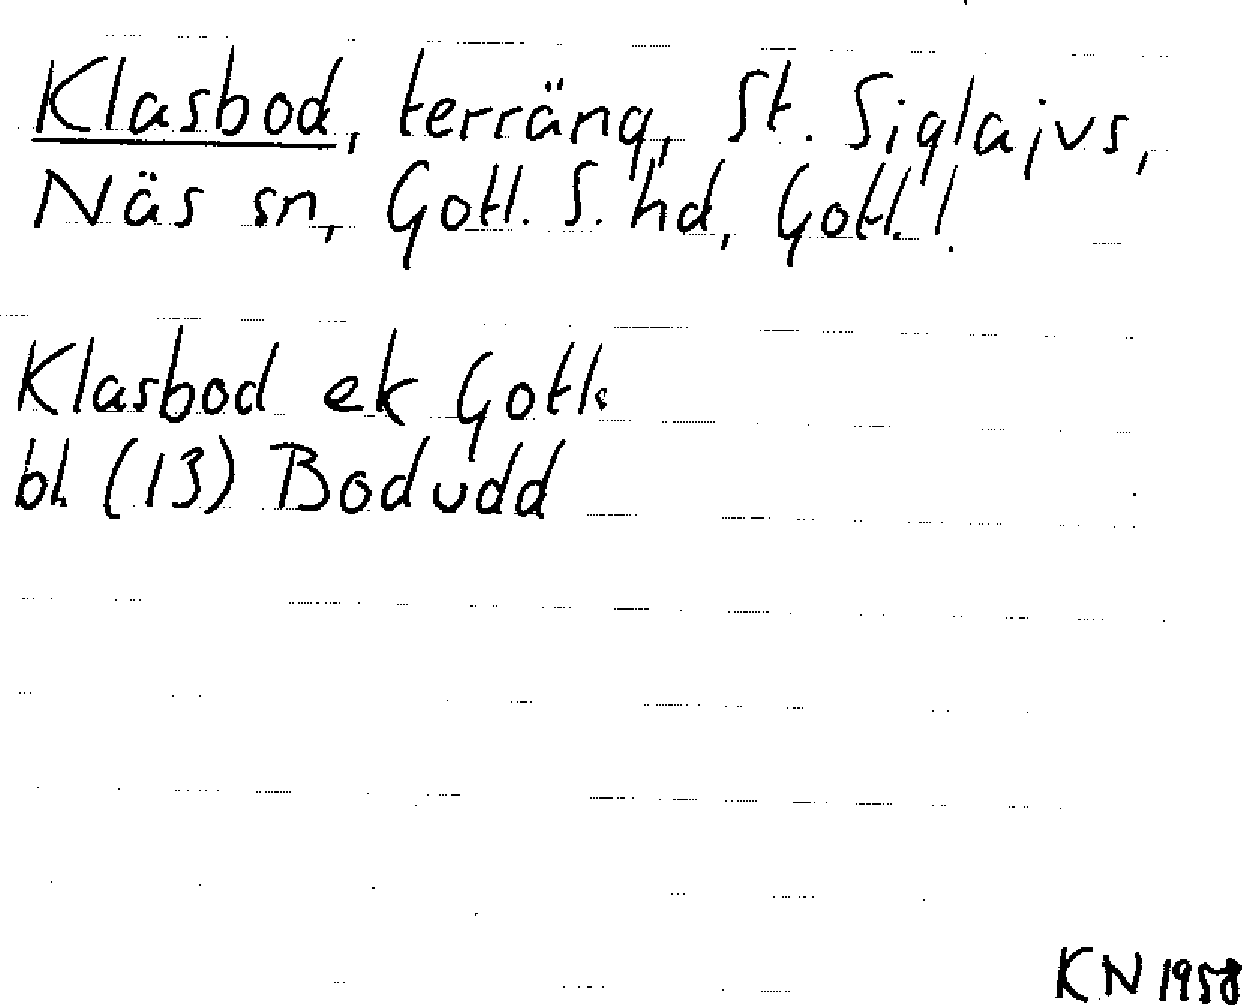 Klasbod, terräng, St. Siglajvs,
Näs sn, Gotl. S. hd, Gotl. l.
Klasbod ek Gotl.
bl. (13) Bodudd
KN 1958